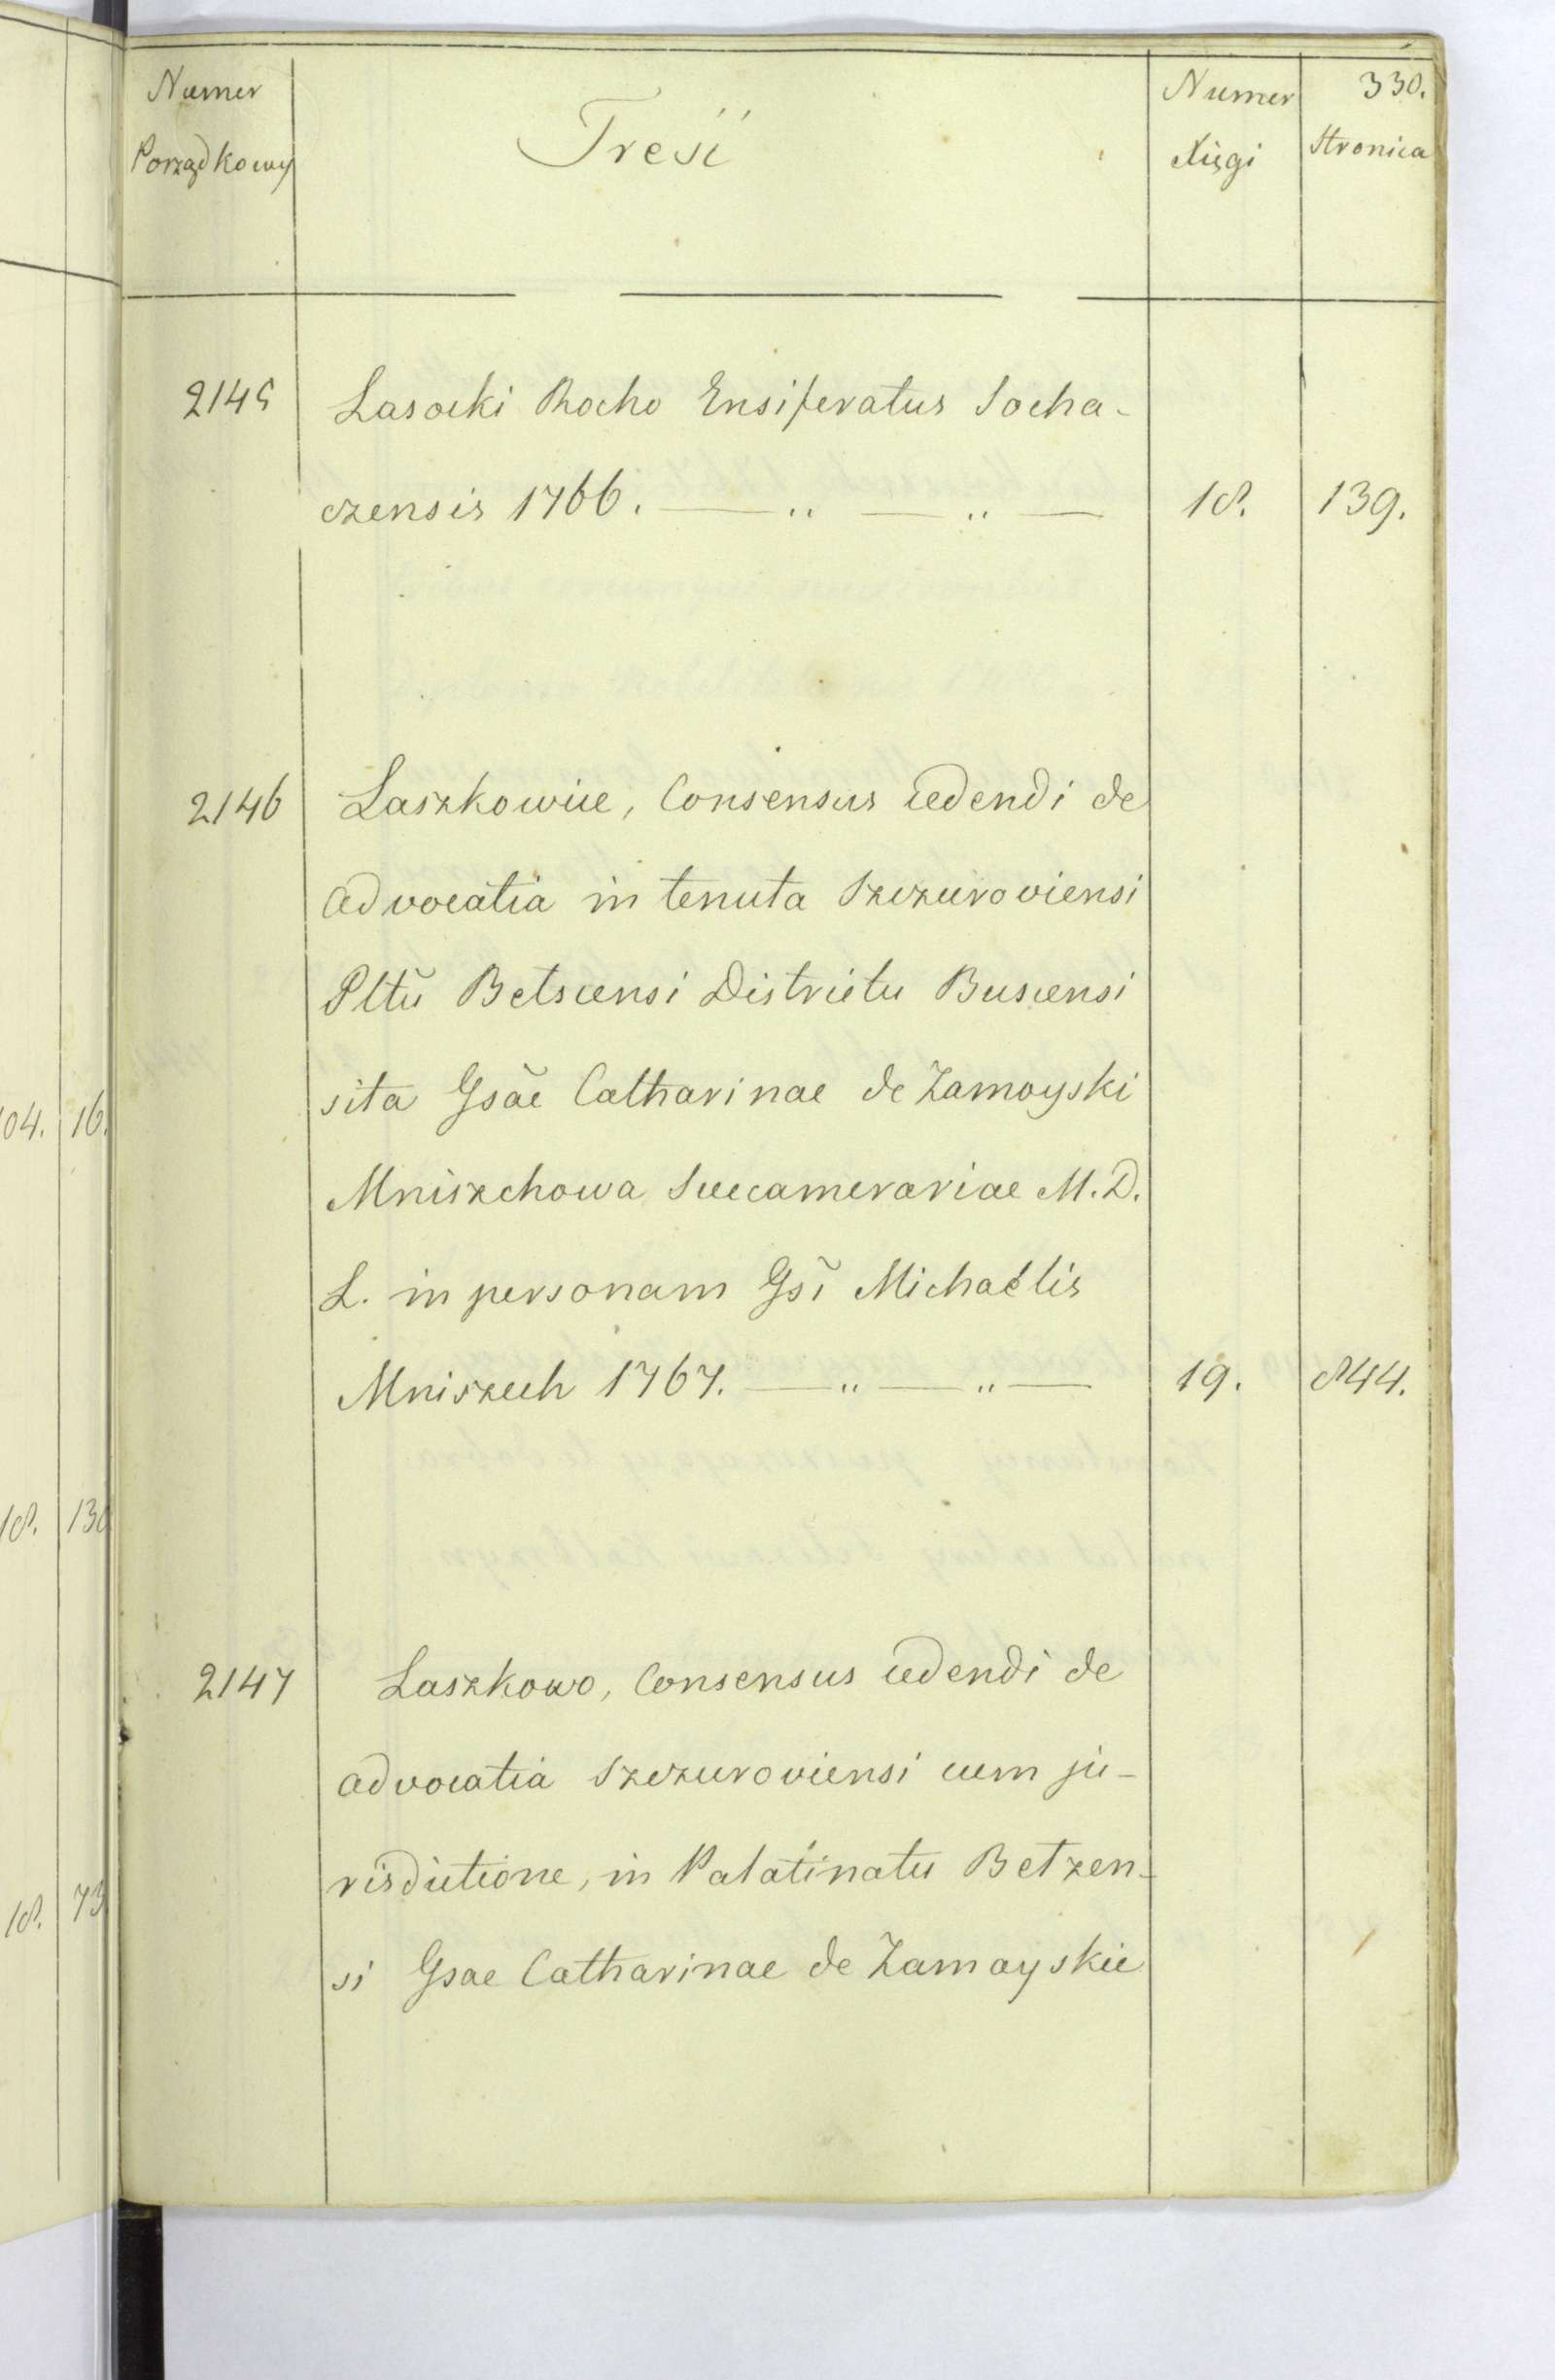 330.
Numer Porządkowy
Treść
Numer Xięgi
Stronica
2145 Lasocki Rocho Ensiferatus Socha-
czensis 1766. — „ — „ — 18. 139.
2146 Laszkowice, Consensus cedendi de
advocatia in tenuta Szczuroviensi
Pltũ Betscensi Districtu Buscensi
sita Gsãe Catharinae de Zamoyski
Mniszchowa Succamerariae M. D.
L. in personam Gsĩ Michaëlis
Mniszech 1767. — „ — „ — 19. 844.
2147 Laszkowo, Consensus cedendi de
advocatia Szczuroviensi cum ju-
risdictione, in Palatinatu Betzen-
si Gsae Catharinae de Zamayskie
04. 16.
18.
18. 73